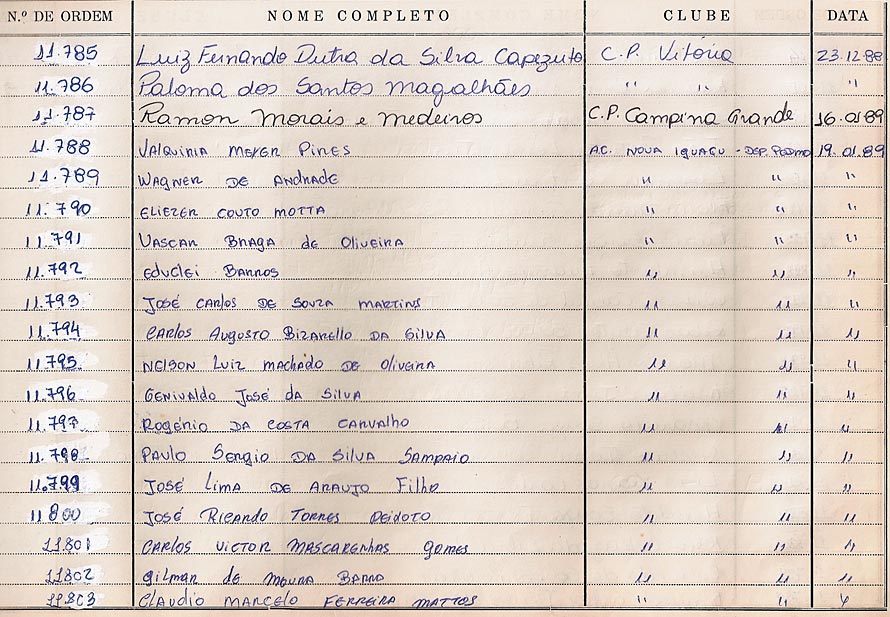 N.º DE ORDEM NOME COMPLETO CLUBE DATA
11.785 Luiz Fernando Dutra da Silva Capezuto C.P. Vitória 23.12.88
11.786 Paloma dos Santos Magalhães " " "
11.787 Ramon Morais e Medeiros C.P. Campina Grande 16.01.89
11.788 VALQUIRIA MEYER PIRES A.C. NOVA IGUAÇU - DEP. PODMO 19.01.89
11.789 WAGNER DE ANDRADE " " "
11.790 ELIEZER COUTO MOTTA " " "
11.791 VASCAR BRAGA de OLIVEIRA " " "
11.792 EDUCLEI BARROS " " "
11.793 JOSÉ CARLOS DE SOUZA MARTINS " " "
11.794 CARLOS AUGUSTO BIZARELLO DA SILVA " " "
11.795 NELSON LUIZ MACHADO DE OLIVEIRA " " "
11.796 GENIVALDO JOSÉ da SILVA " " "
11.797 ROGÉRIO DA COSTA CARVALHO " " "
11.798 PAULO SERGIO DA SILVA SAMPAIO " " "
11.799 JOSÉ LIMA DE ARAUJO Filho " " "
11800 JOSÉ RICARDO TORRES PEIXOTO " " "
11801 CARLOS VICTOR MASCARENHAS GOMES " " "
11802 GILMAR de MOURA BARRO " " "
11803 CLAUDIO MARCELO FERREIRA MATTOS " " "